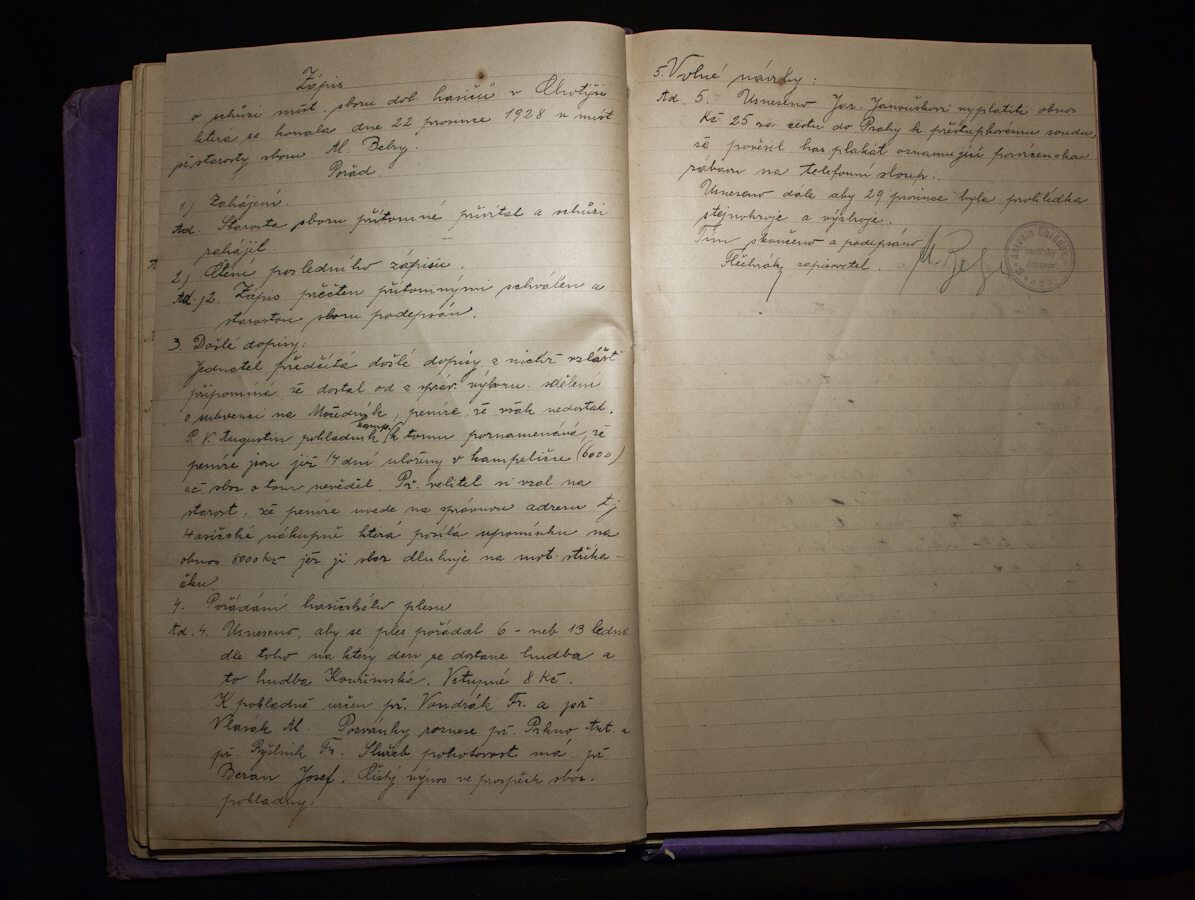 Zápis
o schůzi míst. sboru dob. hasičů v Chotýši
která se konala dne 22 prosince 1928 v míst
př. starosty sboru Al. Bebry.
Pořád.
1.) Zahájení.
Ad. Starosta sboru přítomné přivítal a schůzi
zahájil.
2.) Čtení posledního zápisu.
Ad.) 2. Zápis přečten přítomnými schválen a
starostou sboru podepsán.
3. Došlé dopisy.
Jednatel předčítá došlé dopisy z nichž vzlášť
připomíná že dostal od z. správ. výboru. sdělení
o subvenci na Močidník, peníze, že však nedostal.
P. V. Augustin pokladník kamp. k tomu poznamenává, že
peníze jsou již 14 dní uloženy v kampeličce (6000)
ač sbor o tom nevěděl. Př. velitel si vzal na
starost, že peníze uvede na správnou adresu tj
Hasičské nákupně která posílá upomínku na
obnos 8000 Kč jež jí sbor dluhuje na mot. stříka-
čku.
4. Pořádání hasičského plesu
Ad. 4. Usneseno, aby se ples pořádal 6 - neb 13 ledna
dle toho na který den se dostane hudba a
to hudba Kouřimská. Vstupné 8 Kč.
K pokladně určen př. Vondrák Fr. a př
Vlasák Al. Pozvánky roznese př. Ant. a
př Fr. Služeb. pohotovost má př
Beran Josef. Čistý výnos ve prospěch sbor.
pokladny.
5. Volné návrhy:
Ad. 5. Usneseno Jar. Janouškovi vyplatiti obnos
Kč 25 za cestu do Prahy k přestupkovému soudu
že pověsil has. plakát oznamující posvícenskou
zábavu na telefonní sloup.
Usneseno dále aby 29 prosince byla prohlídka
stejnokroje a výzbroje.
Tím skončeno a podepsáno
zapisovatel.